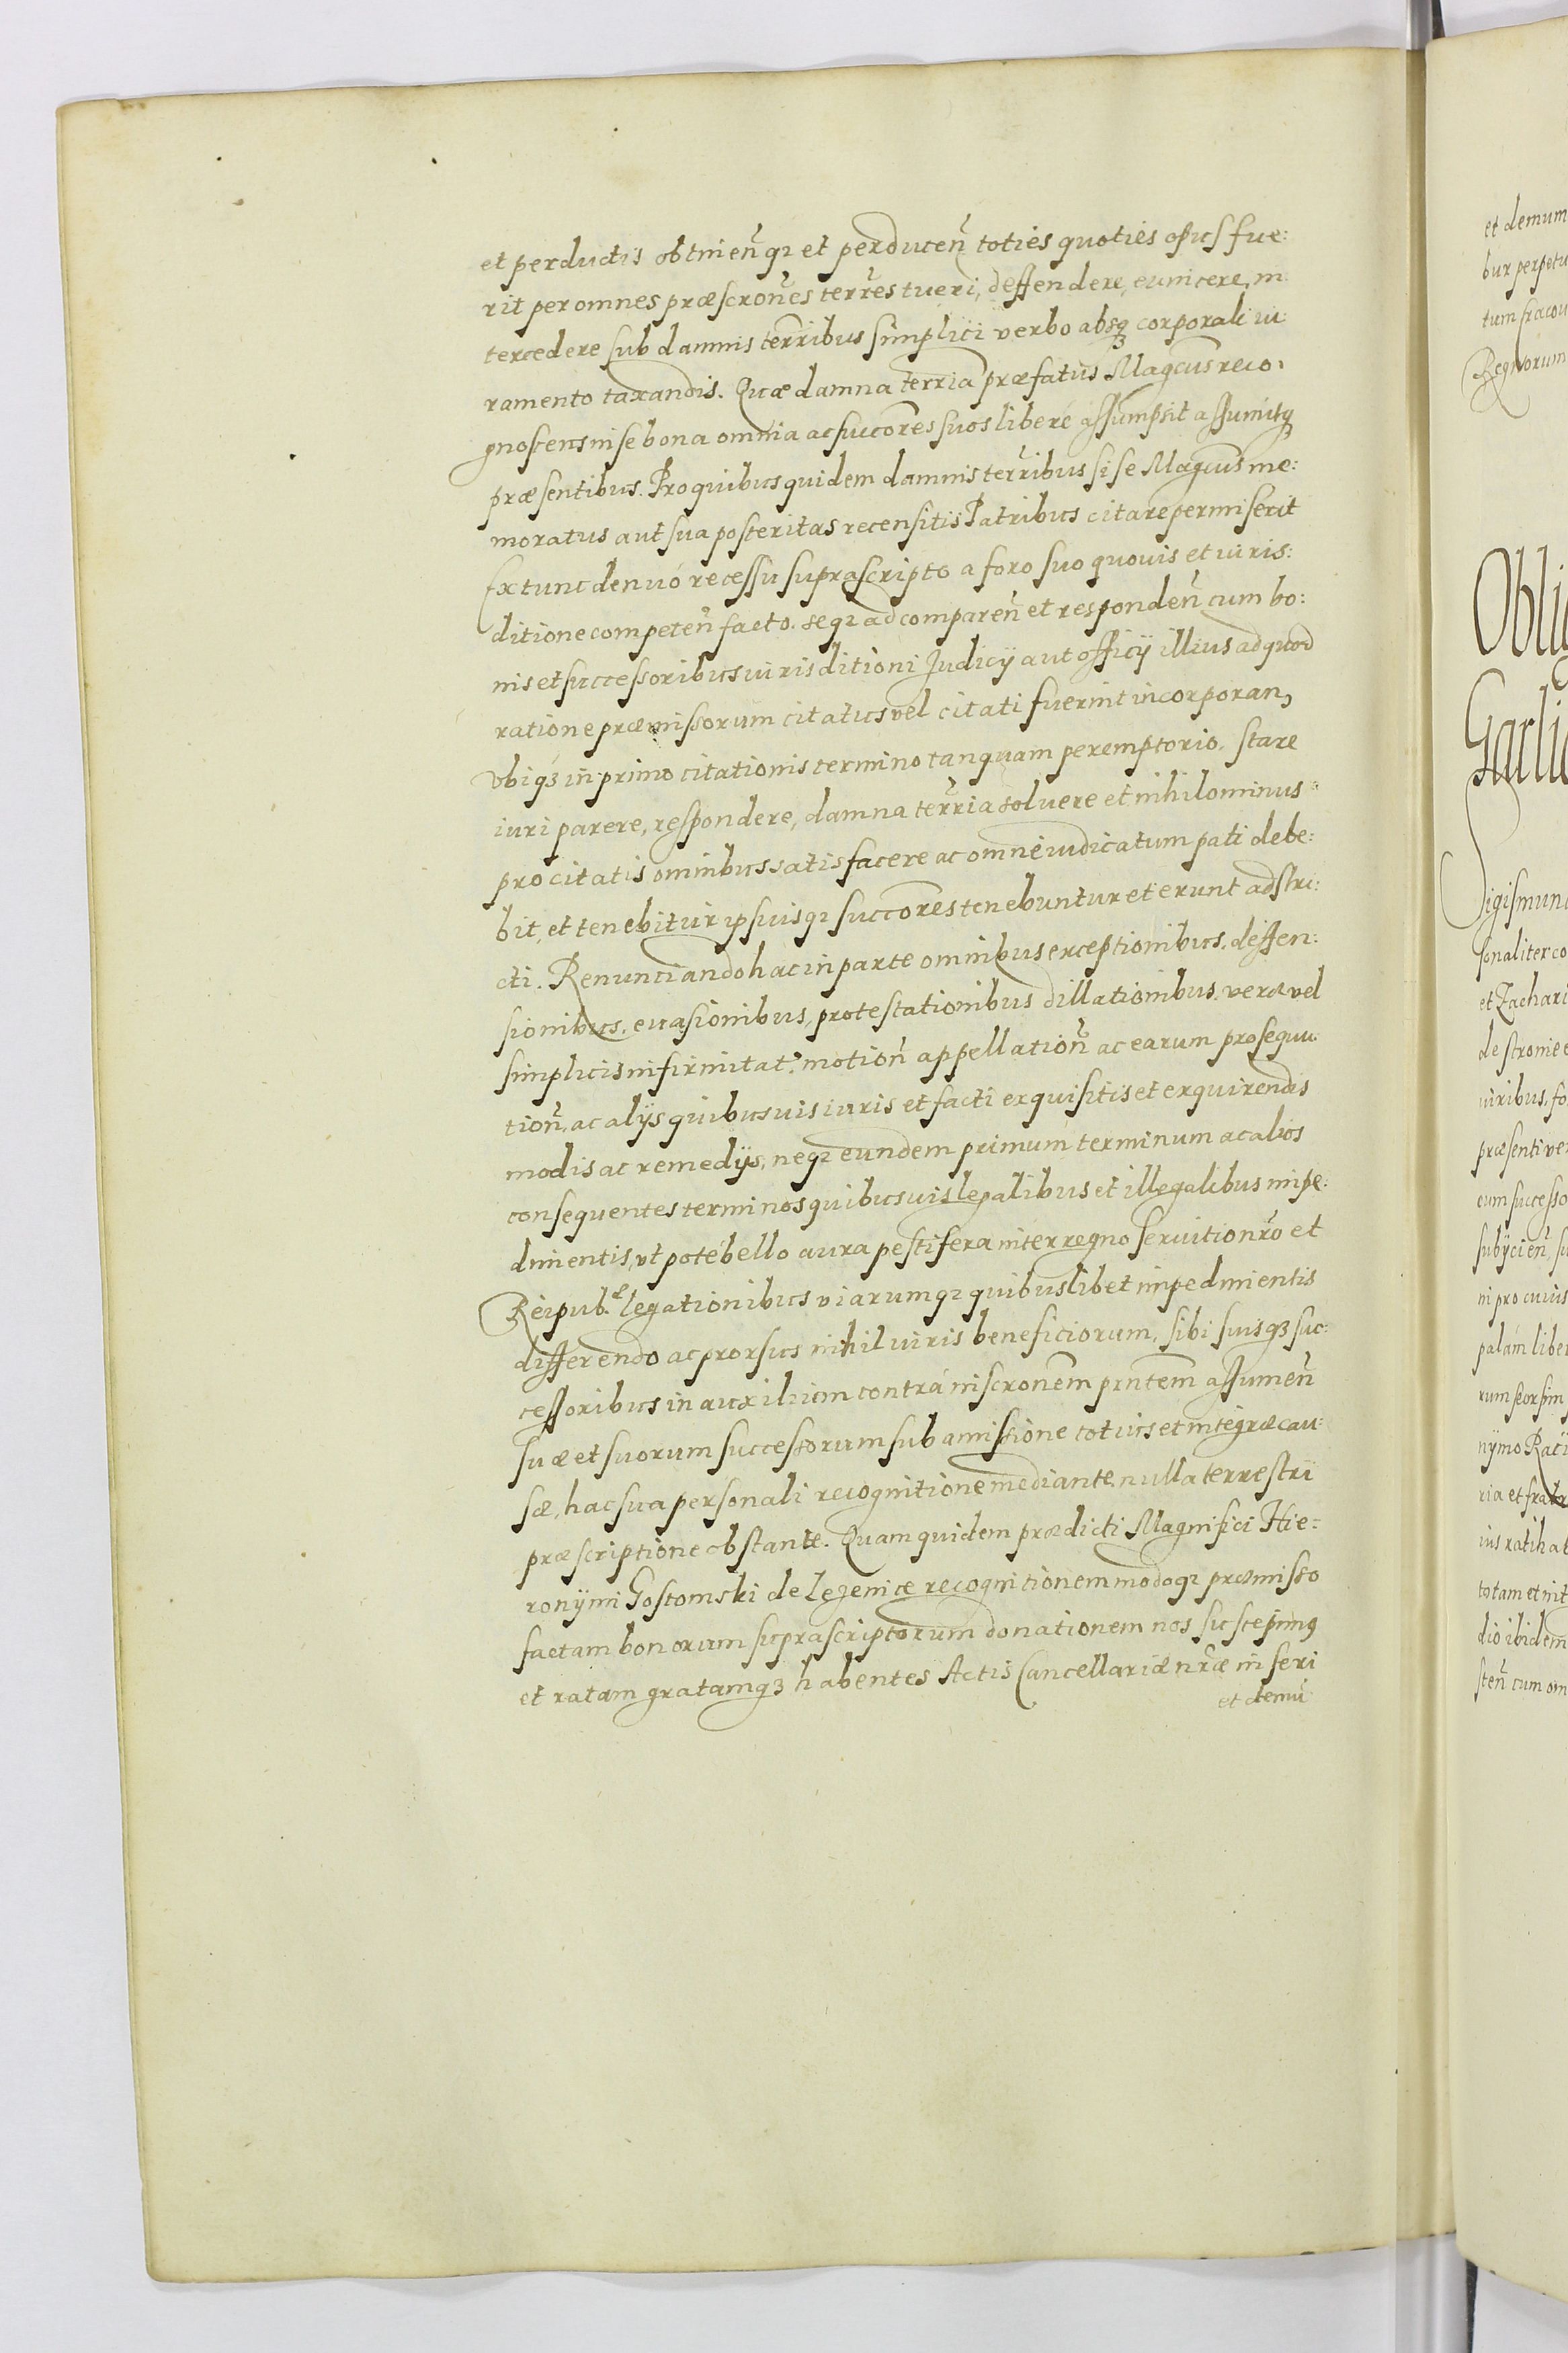 et perductis obtinen̄ qz et perducen̄ toties quoties opus fue:
rit per omnes præscron̄es terr̄es tueri, deffendere, euincere, in
tercedere sub damnis terr̄ibus simplici verbo absqz corporali iu:
ramento taxandis. Quæ damna terr̄ia præfatus Magcus reco:
gnoscens in se bona omnia ac succōres suos liberé assumpsit assumitqz
præsentibus. Pro quibus quidem damnis terr̄ibus si se Magcus me:
moratus aut sua posteritas recensitis Patribus citare permiserit
Ex tunc denuó recessu suprascripto a foro suo quouis et iuris:
ditione competen̄ facto. seqz ad comparen̄ et responden̄ cum bo:
nis et successoribus iurisditioni Judicÿ aut officÿ illius ad quod
ratione præmissorum citatus vel citati fuerint incorporan,
vbiqz in primo citationis termino tanquam peremptorio, stare
iuri parere, respondere, damna terr̄ia soluere et nihilominus
pro citatis omnibus satisfacere ac omne iudicatum pati debe:
bit, et tenebitur ipsi suisqz succōres tenebuntur et erunt adstri:
cti. Renunciando hac in parte omnibus exceptionibus, deffen:
sionibus, euasionibus, protestationibus dillationibus, veræ vel
simplicis infirmitat. motion̄ appellation̄ ac earum prosequu:
tion̄, ac alÿs quibusuis iuris et facti exquisitis et exquirendis
modis ac remedÿs, neqz eundem primum terminum ac alios
consequentes terminos quibusuis legalibus et illegalibus impe:
dimentis, vt poté bello aura pestifera interregno seruition̄ro et
Reipub.æ legationibus viarumqz quibuslibet impedimentis
differendo ac prorsus nihil iuris beneficiorum, sibi suisqz suc:
cessoribus in auxilium contrá inscronēm pn̄tem assumen̄
suæ et suorum successorum sub amissione totius et integræ cau:
sæ, hac sua personali recognitione mediante, nulla terrestri
præscriptione obstante. Quam quidem prædicti Magnifici Hie:
ronÿmi Gostomski de Lezenice recognitionem modoqz præmisso
factam bonorum suprascriptorum donationem nos suscepimꝯ
et ratam gratamqz habentes Actis Cancellariæ nr̄æ inseri
et demū
et demum
bur perpetu
tum Cracou
Regnorum
Obli
Garli
Sigismund
sonaliter co
et Zachari
de stronie e
uiribus, fo
præsenti ve
eum successo
subÿcien̄, su
ni pro cuius
palám liber
rum seorsim
nÿmo Raci
ria et fratr
ius ratihab
totam et int
dio ibidem
sten̄ cum om